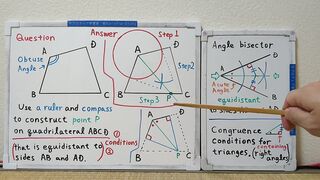 Question
A
D
Obtuse
Angle
B
C
Use a ruler and compass
to construct point P
on quadrilateral ABCD
that is equidistant to
sides AB and AD.
① conditions
②
Answer
Step 1
A
D
Step2
B
Step3
P
C
A
D
B
P
C
Angle bisector
A
Acute
Angle
P
equidistant
to
Congruence
conditions for
trianges.
(containing
right
angles)